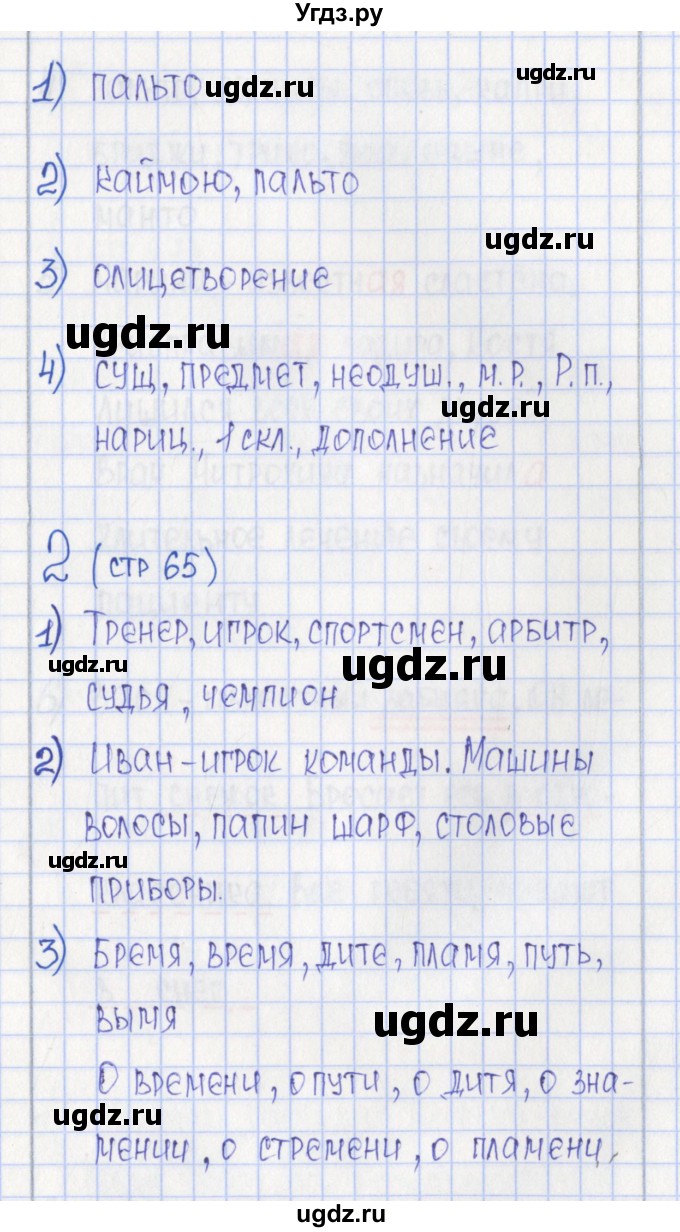 Угдз.ру
1) пальто ugdz.ru
ugdz.ru
2) каймою, пальто
ugdz.ru
3) олицетворение
ugdz.ru
4) сущ, предмет, неодуш., м.р., Р.п.,
ugdz.ru
нариц., 1 скл., дополнение
2 (стр 65)
1) Тренер, игрок, спортсмен, арбитр,
ugdz.ru ugdz.ru
судья, чемпион
2) Иван - игрок команды. Машины
волосы, папин шарф, столовые
ugdz.ru
приборы.
3) Бремя, время, дите, пламя, путь,
вымя ugdz.ru
О времени, о пути, о дитя, о зна-
ugdz.ru
мении, о стремени, о пламени,
ugdz.ru